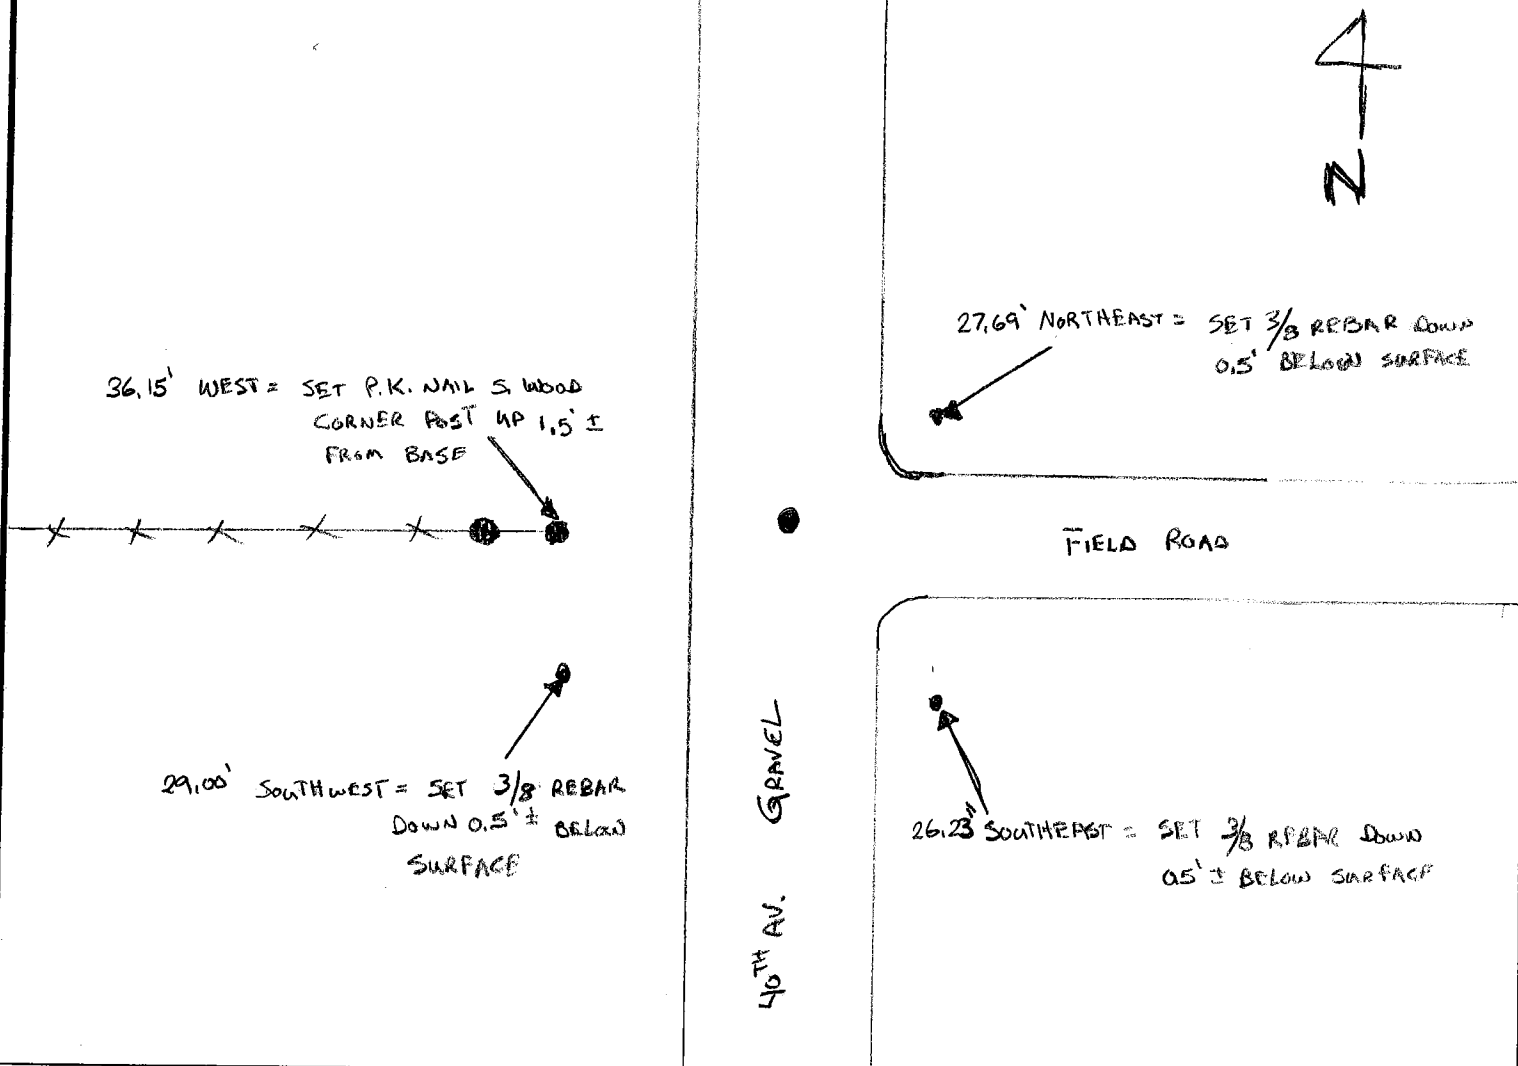 N
27.69' NORTHEAST = SET 3/8 REBAR DOWN
0.5' BELOW SURFACE
36.15' WEST = SET P.K. NAIL S. WOOD
CORNER POST UP 1.5' ±
FROM BASE
FIELD ROAD
29.00' SOUTHWEST = SET 3/8 REBAR
DOWN 0.5' ± BELOW
SURFACE
26.23" SOUTHEAST = SET 3/8 REBAR DOWN
0.5' ± BELOW SURFACE
40TH AV. GRAVEL